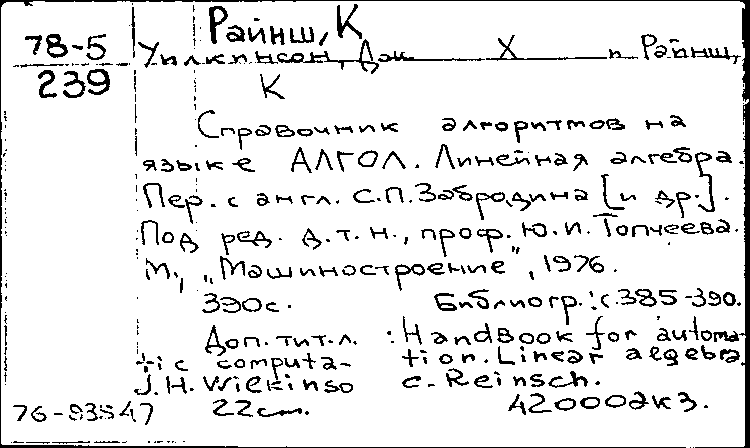 Райнш, К
78-5
239
Уилкинсон, Дж. Х и Райнш,
К
Справочник алгоритмов на
языке АЛГОЛ. Линейная алгебра.
Пер. с англ. С.П. Забродина [и др.].
Под ред. д.т.н., проф. Ю.И. Топчеева.
М., „Машиностроение”, 1976.
390с. Библиогр.: с.385-390.
Доп. тит. л. : Handbook for automa-
tic computa- tion. Linear algebra.
J.H. Wilkinso c. Reinsch.
22см. 42000экз.